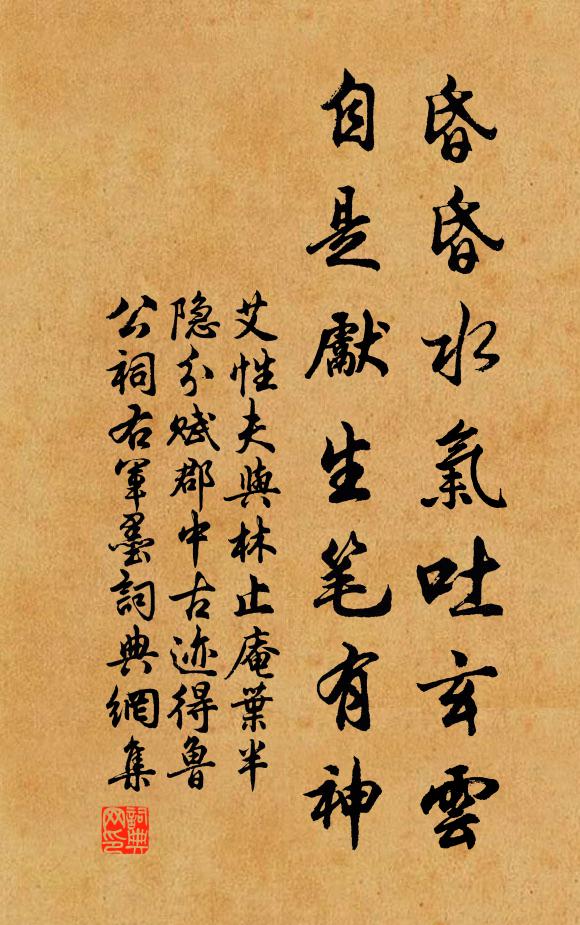 昏昏水氣吐玄雲
自是獻生笔有神
艾性夫與林止庵葉半
隐分赋郡中古迹得魯
公祠右軍墨詞典網集
詞典
网印